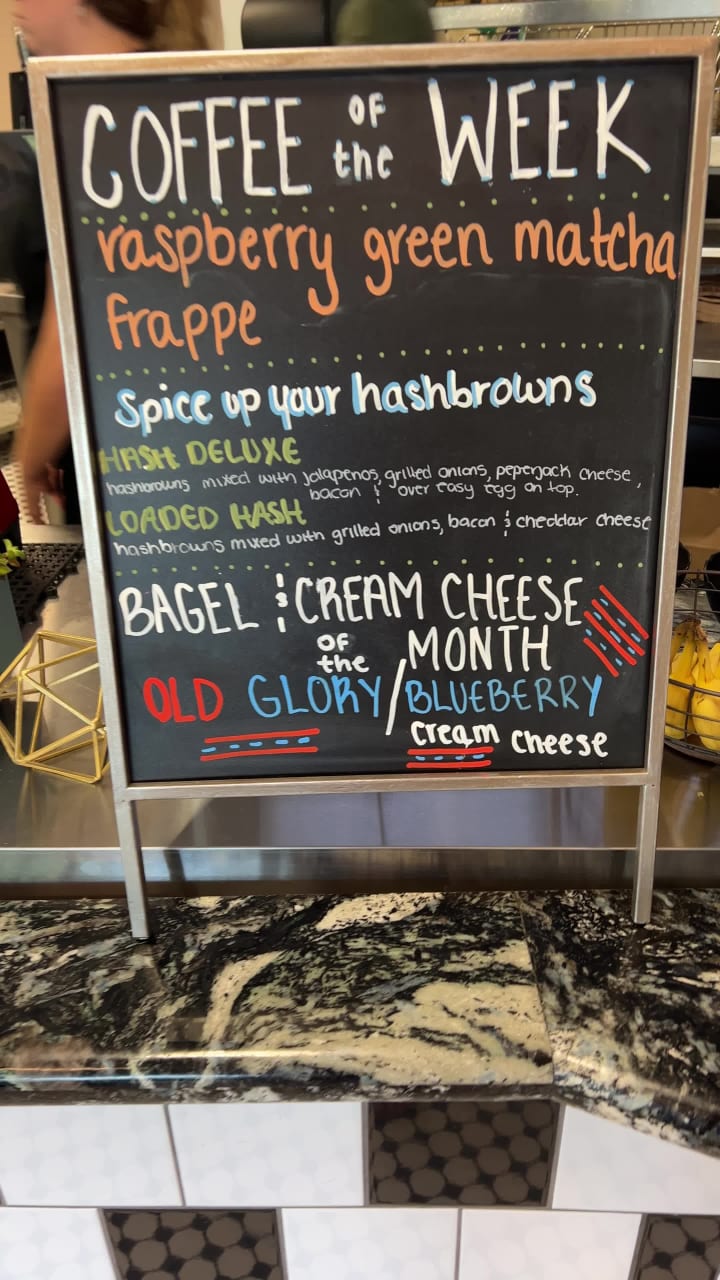 COFFEE OF the WEEK
raspberry green matcha
frappe
Spice up your hashbrowns
HASH DELUXE
hashbrowns mixed with jalapenos, grilled onions, pepperjack cheese,
bacon & over easy egg on top.
LOADED HASH
hashbrowns mixed with grilled onions, bacon & cheddar cheese
BAGEL & CREAM CHEESE
OF the MONTH
OLD GLORY/BLUEBERRY
cream cheese